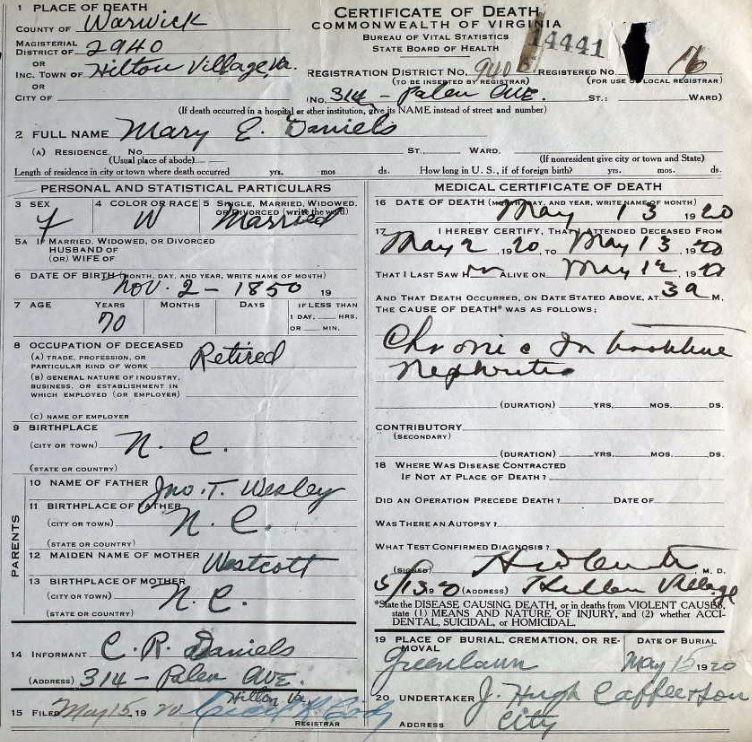 CERTIFICATE OF DEATH
COMMONWEALTH OF VIRGINIA
BUREAU OF VITAL STATISTICS
STATE BOARD OF HEALTH
14441
1 PLACE OF DEATH
COUNTY OF Warwick
MAGISTERIAL DISTRICT OF 2940
OR
INC. TOWN OF Hilton Village, Va.
OR
CITY OF
REGISTRATION DISTRICT No. 940 B REGISTERED No. 16
(TO BE INSERTED BY REGISTRAR) (FOR USE OF LOCAL REGISTRAR)
(No. 314 - Palen Ave. ST.: WARD)
(If death occurred in a hospital or other institution, give its NAME instead of street and number)
2 FULL NAME Mary E. Daniels
(A) RESIDENCE. No. ST., WARD.
(Usual place of abode) (If nonresident give city or town and State)
Length of residence in city or town where death occurred yrs. mos ds. How long in U. S., if of foreign birth? yrs. mos. ds.
PERSONAL AND STATISTICAL PARTICULARS
3 SEX 4 COLOR OR RACE 5 SINGLE, MARRIED, WIDOWED, OR DIVORCED (write the word)
F W Married
5A IF MARRIED, WIDOWED, OR DIVORCED
HUSBAND OF
(OR) WIFE OF
6 DATE OF BIRTH (MONTH, DAY, AND YEAR, WRITE NAME OF MONTH)
Nov. 2 - 1850 19
7 AGE YEARS MONTHS DAYS IF LESS THAN
70 1 DAY, HRS.
OR MIN.
8 OCCUPATION OF DECEASED
(A) TRADE, PROFESSION, OR
PARTICULAR KIND OF WORK Retired
(B) GENERAL NATURE OF INDUSTRY,
BUSINESS, OR ESTABLISHMENT IN
WHICH EMPLOYED (OR EMPLOYER)
(C) NAME OF EMPLOYER
9 BIRTHPLACE
(CITY OR TOWN) N. C.
(STATE OR COUNTRY)
PARENTS
10 NAME OF FATHER Jno. T. Wesley
11 BIRTHPLACE OF FATHER
(CITY OR TOWN) N. C.
(STATE OR COUNTRY)
12 MAIDEN NAME OF MOTHER Westcott
13 BIRTHPLACE OF MOTHER
(CITY OR TOWN) N. C.
(STATE OR COUNTRY)
14 INFORMANT C. R. Daniels
(ADDRESS) 314 - Palen Ave.
Hilton Va.
15 FILED May 15, 19 20
REGISTRAR
MEDICAL CERTIFICATE OF DEATH
16 DATE OF DEATH (MONTH, DAY, AND YEAR, WRITE NAME OF MONTH)
May 13 1920
17 I HEREBY CERTIFY, THAT I ATTENDED DECEASED FROM
May 2 1920, TO May 13, 1920
THAT I LAST SAW H ALIVE ON May 12, 19
AND THAT DEATH OCCURRED, ON DATE STATED ABOVE, AT 3 a M.
THE CAUSE OF DEATH* WAS AS FOLLOWS:
Chronic
Nephritis
(DURATION) YRS. MOS. DS.
CONTRIBUTORY
(SECONDARY)
(DURATION) YRS. MOS. DS.
18 WHERE WAS DISEASE CONTRACTED
IF NOT AT PLACE OF DEATH?
DID AN OPERATION PRECEDE DEATH? DATE OF
WAS THERE AN AUTOPSY?
WHAT TEST CONFIRMED DIAGNOSIS?
(SIGNED) M. D.
5/13 (ADDRESS) Hilton Village
*State the DISEASE CAUSING DEATH, or in deaths from VIOLENT CAUSES,
state (1) MEANS AND NATURE OF INJURY, and (2) whether ACCI-
DENTAL, SUICIDAL, or HOMICIDAL.
19 PLACE OF BURIAL, CREMATION, OR RE- DATE OF BURIAL
MOVAL
Greenlawn May 15 1920
20 UNDERTAKER J. Hugh Cafferton
ADDRESS City